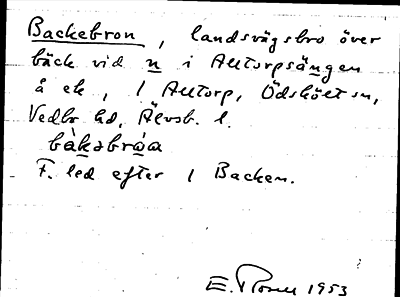 Backebron, landsvägsbro över
bäck vid n i Alltorpsängen
å ek, 1 Alltorp, Ödskölt sn,
Vedbo hd, Älvsb. l.
bàkabròa
F. led efter 1 Backen.
E. 1953